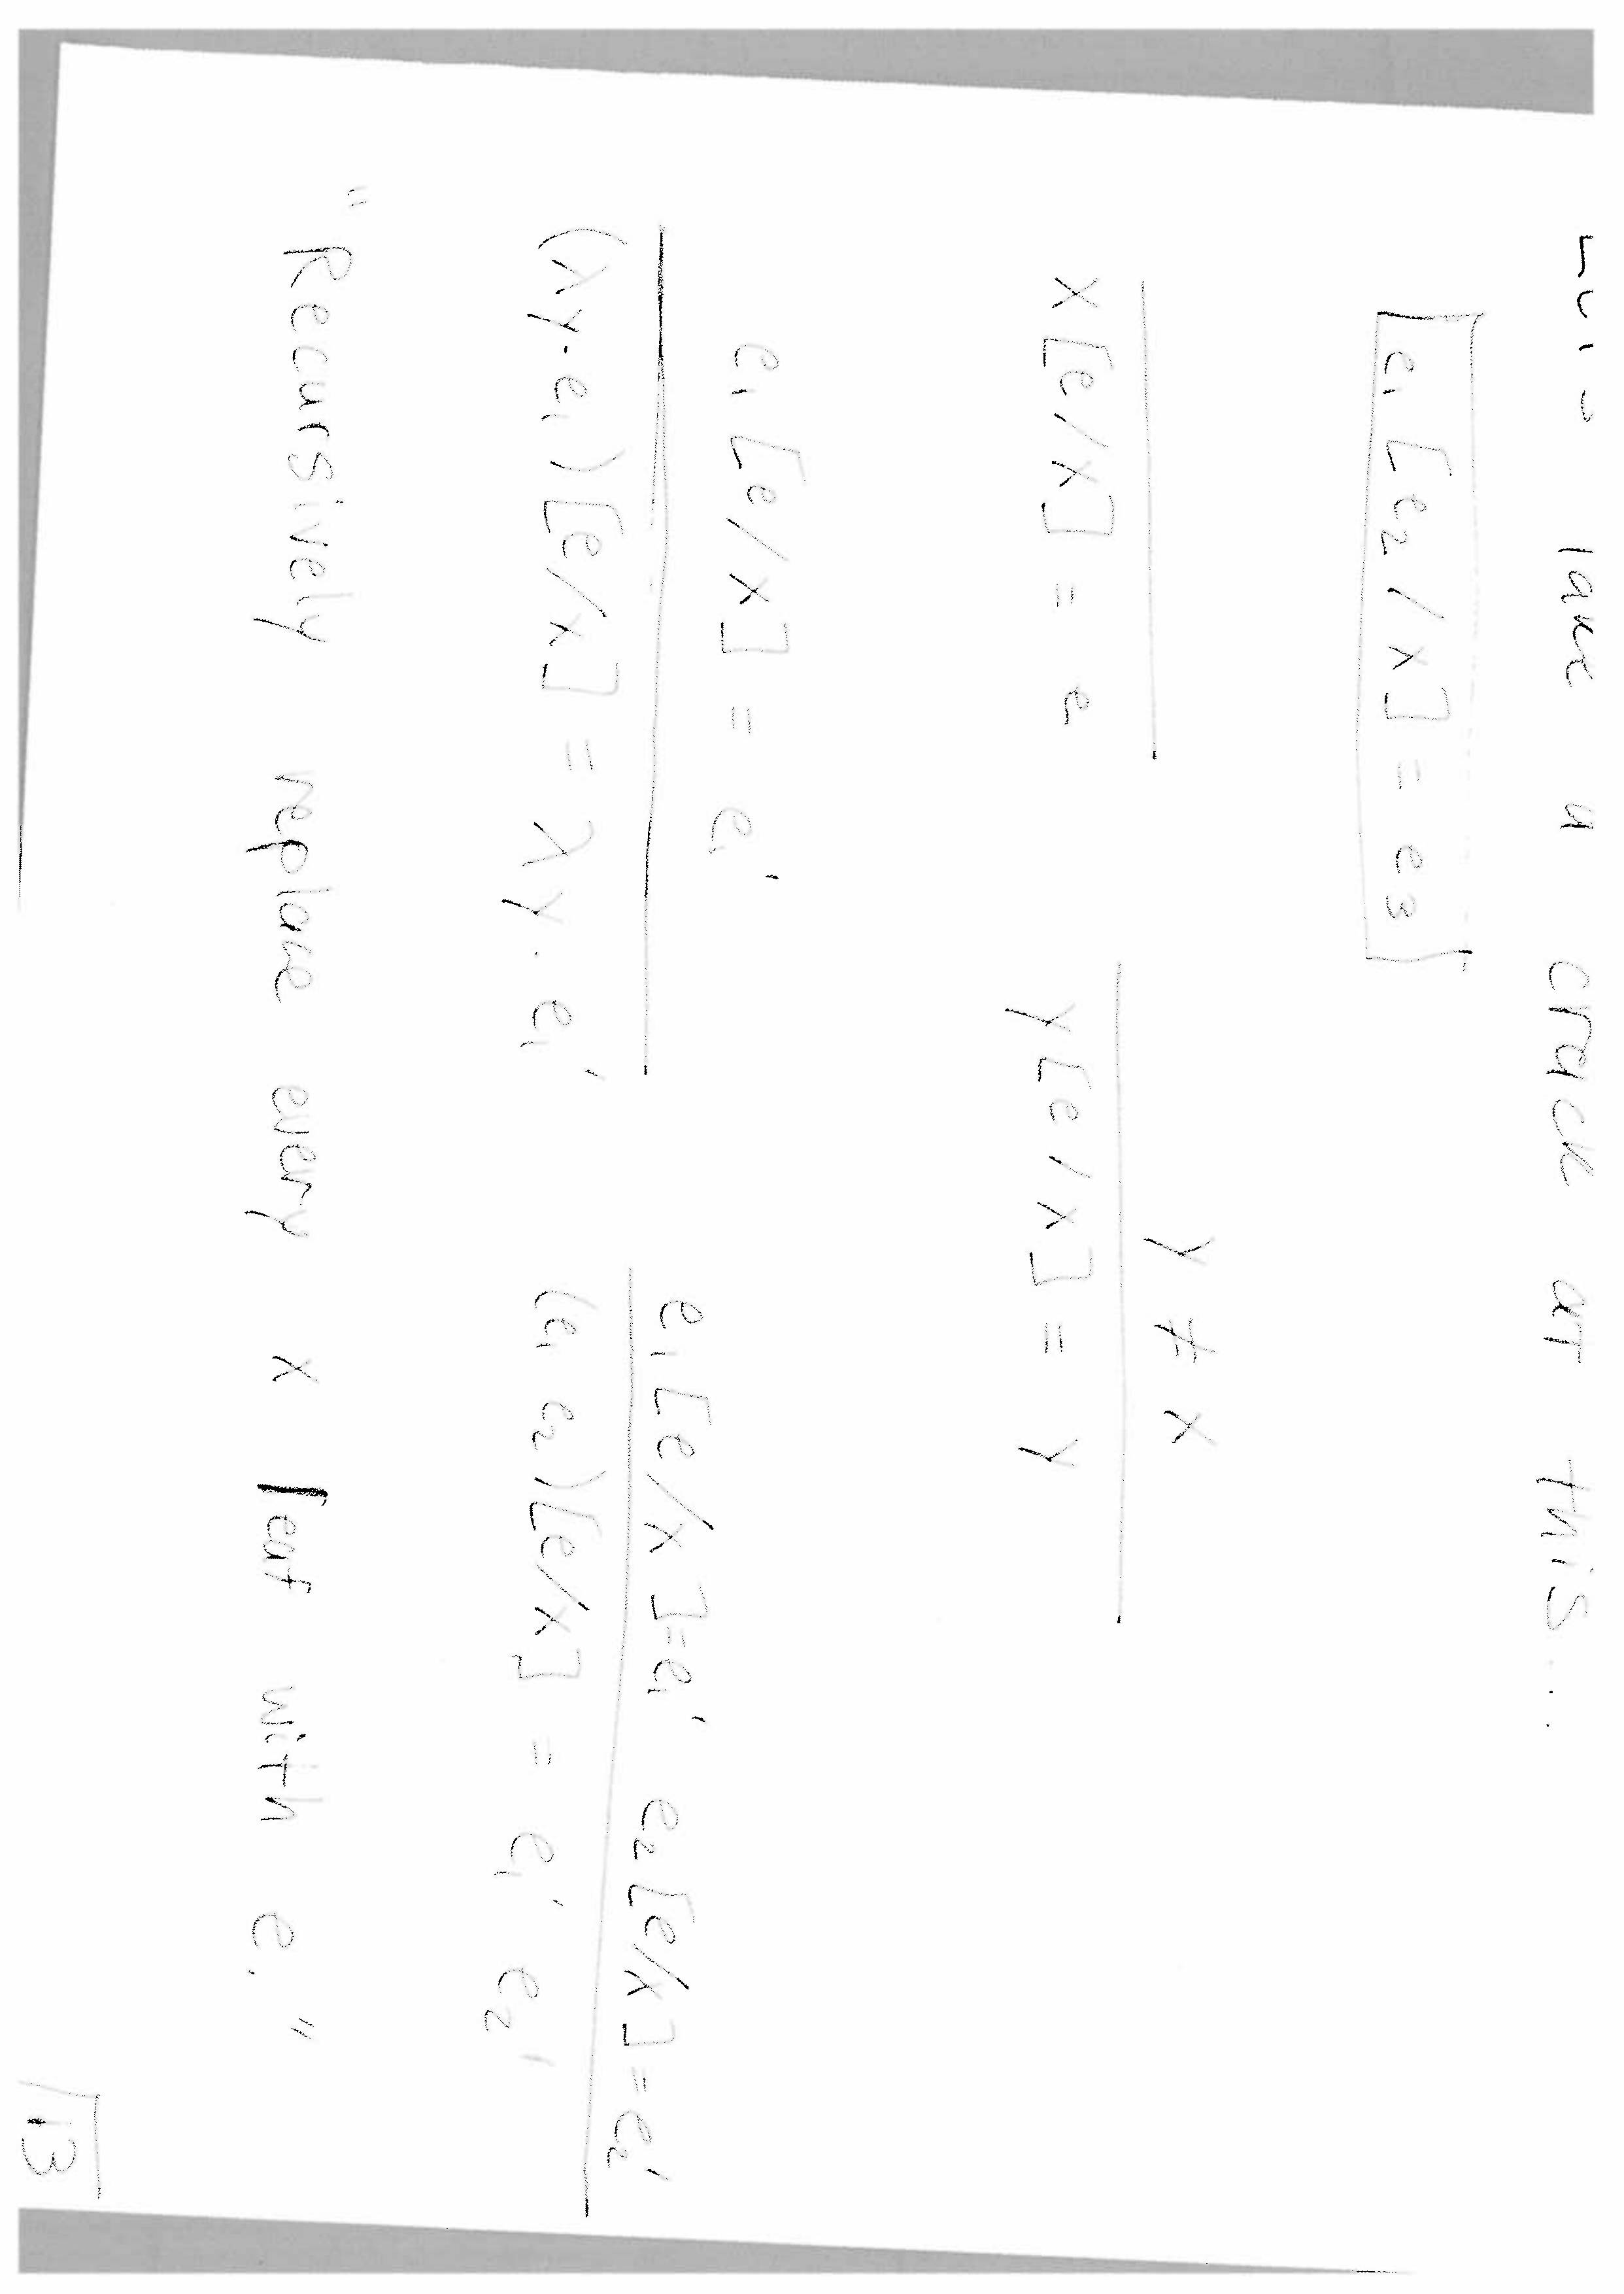 Let's take a crack at this...
e₁[e₂/x] = e₃
x[e/x] = e
y ≠ x
y[e/x] = y
e₁[e/x] = e₁'
(λy.e₁)[e/x] = λy.e₁'
e₁[e/x]=e₁' e₂[e/x]=e₂'
(e₁ e₂)[e/x] = e₁' e₂'
"Recursively replace every x leaf with e."
13